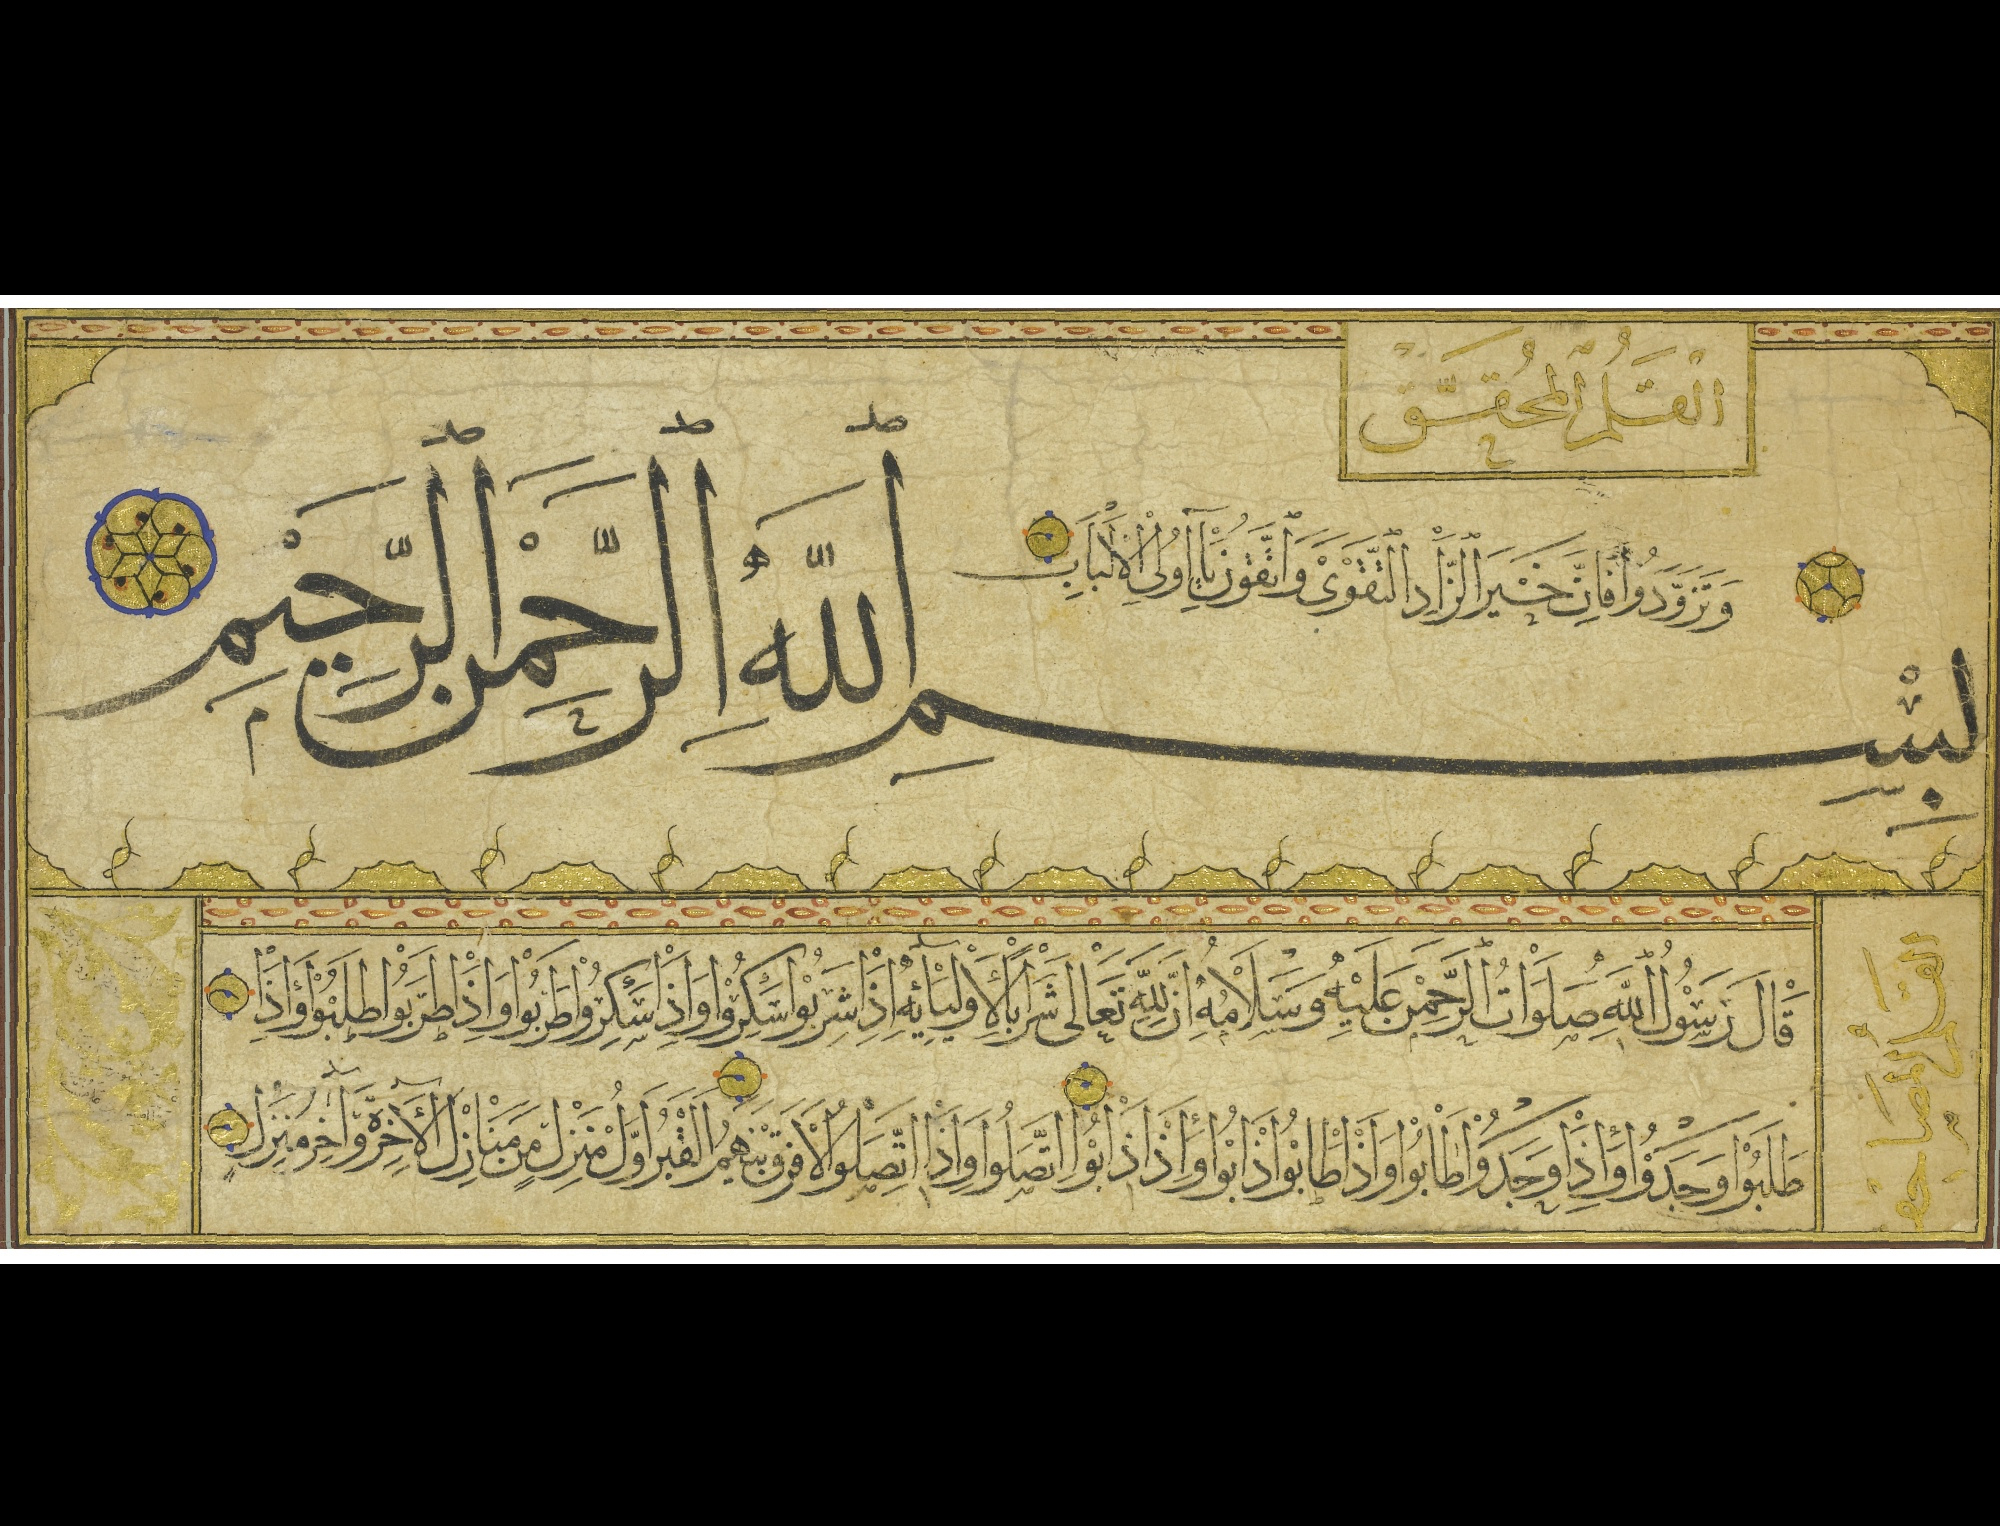 القلم المحقق
وَتَزَوَّدُوا فَاِنَّ خَيْرَ الزَّادِ التَّقْوَىٰ وَاتَّقُونِ يَا اُولِي الْاَلْبَابِ
بِسْمِ اللَّهِ الرَّحْمٰنِ الرَّحِيمِ
قلم المصاحف
قَالَ رَسُوْلُ اللّٰهِ صَلَوَاتُ الرَّحْمٰنِ عَلَيْهِ وَسَلَامُهُ اِنَّ لِلّٰهِ تَعَالٰى شَرَابًا لِاَوْلِيَائِهِ اِذَا شَرِبُوْا سَكِرُوْا وَاِذَا سَكِرُوْا طَرِبُوْا وَاِذَا طَرِبُوْا طَلَبُوْا وَاِذَا
طَلَبُوْا وَجَدُوْا وَاِذَا وَجَدُوْا طَابُوْا وَاِذَا طَابُوْا ذَابُوْا وَاِذَا ذَابُوْا اتَّصَلُوا وَاِذَا اتَّصَلُوا لَا فَرْقَ بَيْنَهُمْ الْقَبْرُ اَوَّلُ مَنْزِلٍ مِنْ مَنَازِلِ الْاٰخِرَةِ وَاٰخِرُ مَنْزِلٍ